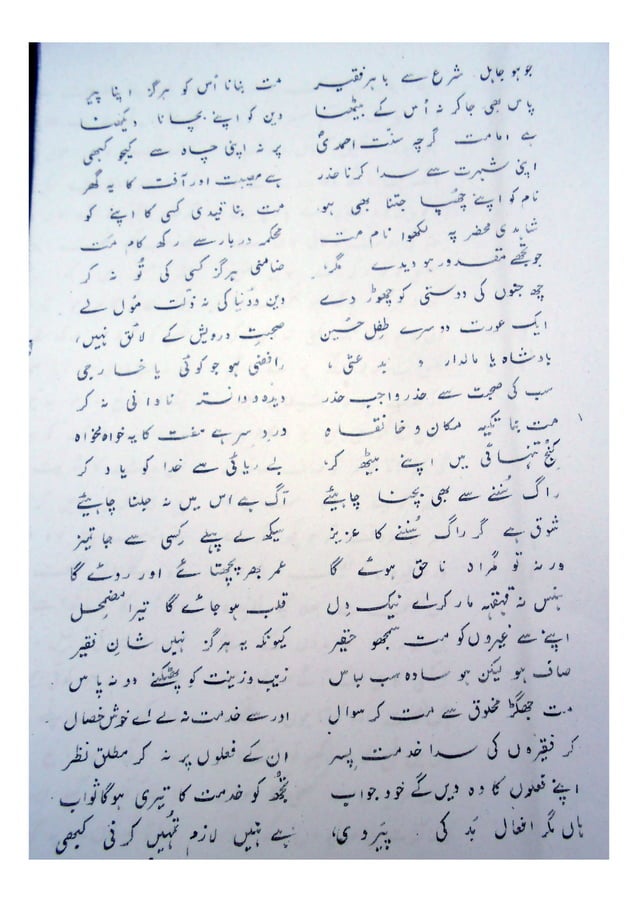 جو ہو جاہل شرع سے باہر فقیر مت بنانا اُس کو ہرگز اپنا پیر
پاس بھی جا کر نہ اُس کے بیٹھنا دین کو اپنے بچانا دیکھنا
ہے امامت گرچہ سنّت احمدیؐ پر نہ اپنی چاہ سے کیجو کبھی
اپنی شہرت سے سدا کرنا حذر ہے مصیبت اور آفت کا یہ گھر
نام کو اپنے چھُپا جتنا بھی ہو، مت بنا قیدی کسی کا اپنے کو
شاہدی محضر پہ لکھوا نام مت محکمہ دربار سے رکھ کام مت
جو تجھے مقدور ہو دیدے مگر، ضامنی ہرگز کسی کی تُو نہ کر
چھ جنوں کی دوستی کو چھوڑ دے دین و دُنیا کی نہ ذلّت مُول لے
ایک عورت دوسرے طفلِ حُسین صحبتِ درویش کے لائق نہیں،
بادشاہ یا مالدار و بدعتی، رافضی ہو جو کوئی یا خارجی
سب کی صحبت سے حذر واجب حذر دیدہ و دانستہ نادانی نہ کر
مت بنا تکیہ مکان و خانقاہ دردِ سر ہے مفت کا یہ خواہ مخواہ
کُنجِ تنہائی میں اپنے بیٹھ کر، بے ریائی سے خدا کو یاد کر
راگ سُننے سے بھی بچنا چاہیئے آگ ہے اس میں نہ جلنا چاہیئے
شوق ہے گر راگ سُننے کا عزیز سیکھ لے پہلے کِسی سے جا تمیز
ورنہ تو گمراہ ناحق ہوئے گا عمر بھر پچھتائے اور روئے گا
ہنس نہ قہقہہ مار کر اے نیک دِل قلب ہو جائے گا تیرا مضمحِل
اپنے سے غیروں کو مت سمجھو حقیر کیونکہ یہ ہرگز نہیں شانِ فقیر
صاف ہو لیکن ہو سادہ سب لباس زیب و زینت کو پھٹکنے دو نہ پاس
مت جھگڑ مخلوق سے مت کر سوال اور سے خدمت نہ لے اے خوش خصال
کر فقیروں کی سدا خدمت پسر ان کے فعلوں پر نہ کر مطلق نظر
اپنے فعلوں کا وہ دیں گے خود جواب تجھُ کو خدمت کا تیری ہو گا ثواب
ہاں مگر افعال بَد کی پیَروی، ہے نہیں لازم تُمہیں کرنی کبھی